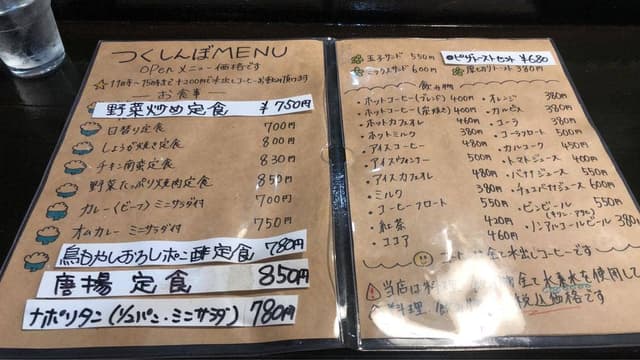 つくしんぼMENU
OPEN メニュー価格です
お食事
野菜炒め定食 ¥750円
日替り定食 700円
しょうが焼き定食 800円
チキン南蛮定食 830円
野菜たっぷり焼肉定食 850円
カレー(ビーフ)ミニサラダ付 700円
オムカレー ミニサラダ付 750円
鳥もやしおろしポン酢定食 780円
唐揚定食 850円
ナポリタン(パン・ミニサラダ) 780円
玉子サンド 550円
ミックスサンド 600円
●ピザトーストセット ¥680
厚切りトースト 380円
飲み物
・ホットコーヒー(ブレンド) 400円
・ホットコーヒー(炭焼き) 400円
・ホットカフェオレ 460円
・ホットミルク 380円
・アイスコーヒー 480円
・アイスウインナー 550円
・アイスカフェオレ
・ミルク 380円
・コーヒーフロート 550円
・紅茶 420円
・ココア 460円
・オレンジ 380円
・カルピス 380円
・コーラ 380円
・コーラフロート 500円
・カルコーク 450円
・トマトジュース 400円
・バナナジュース 550円
・チョコバナナジュース 600円
・ビンビール 550円
(キリン・アサヒ)
・ノンアルコールビール 380円
水出しコーヒーです
当店は料理 全て水素水を使用して
料理 税込価格です